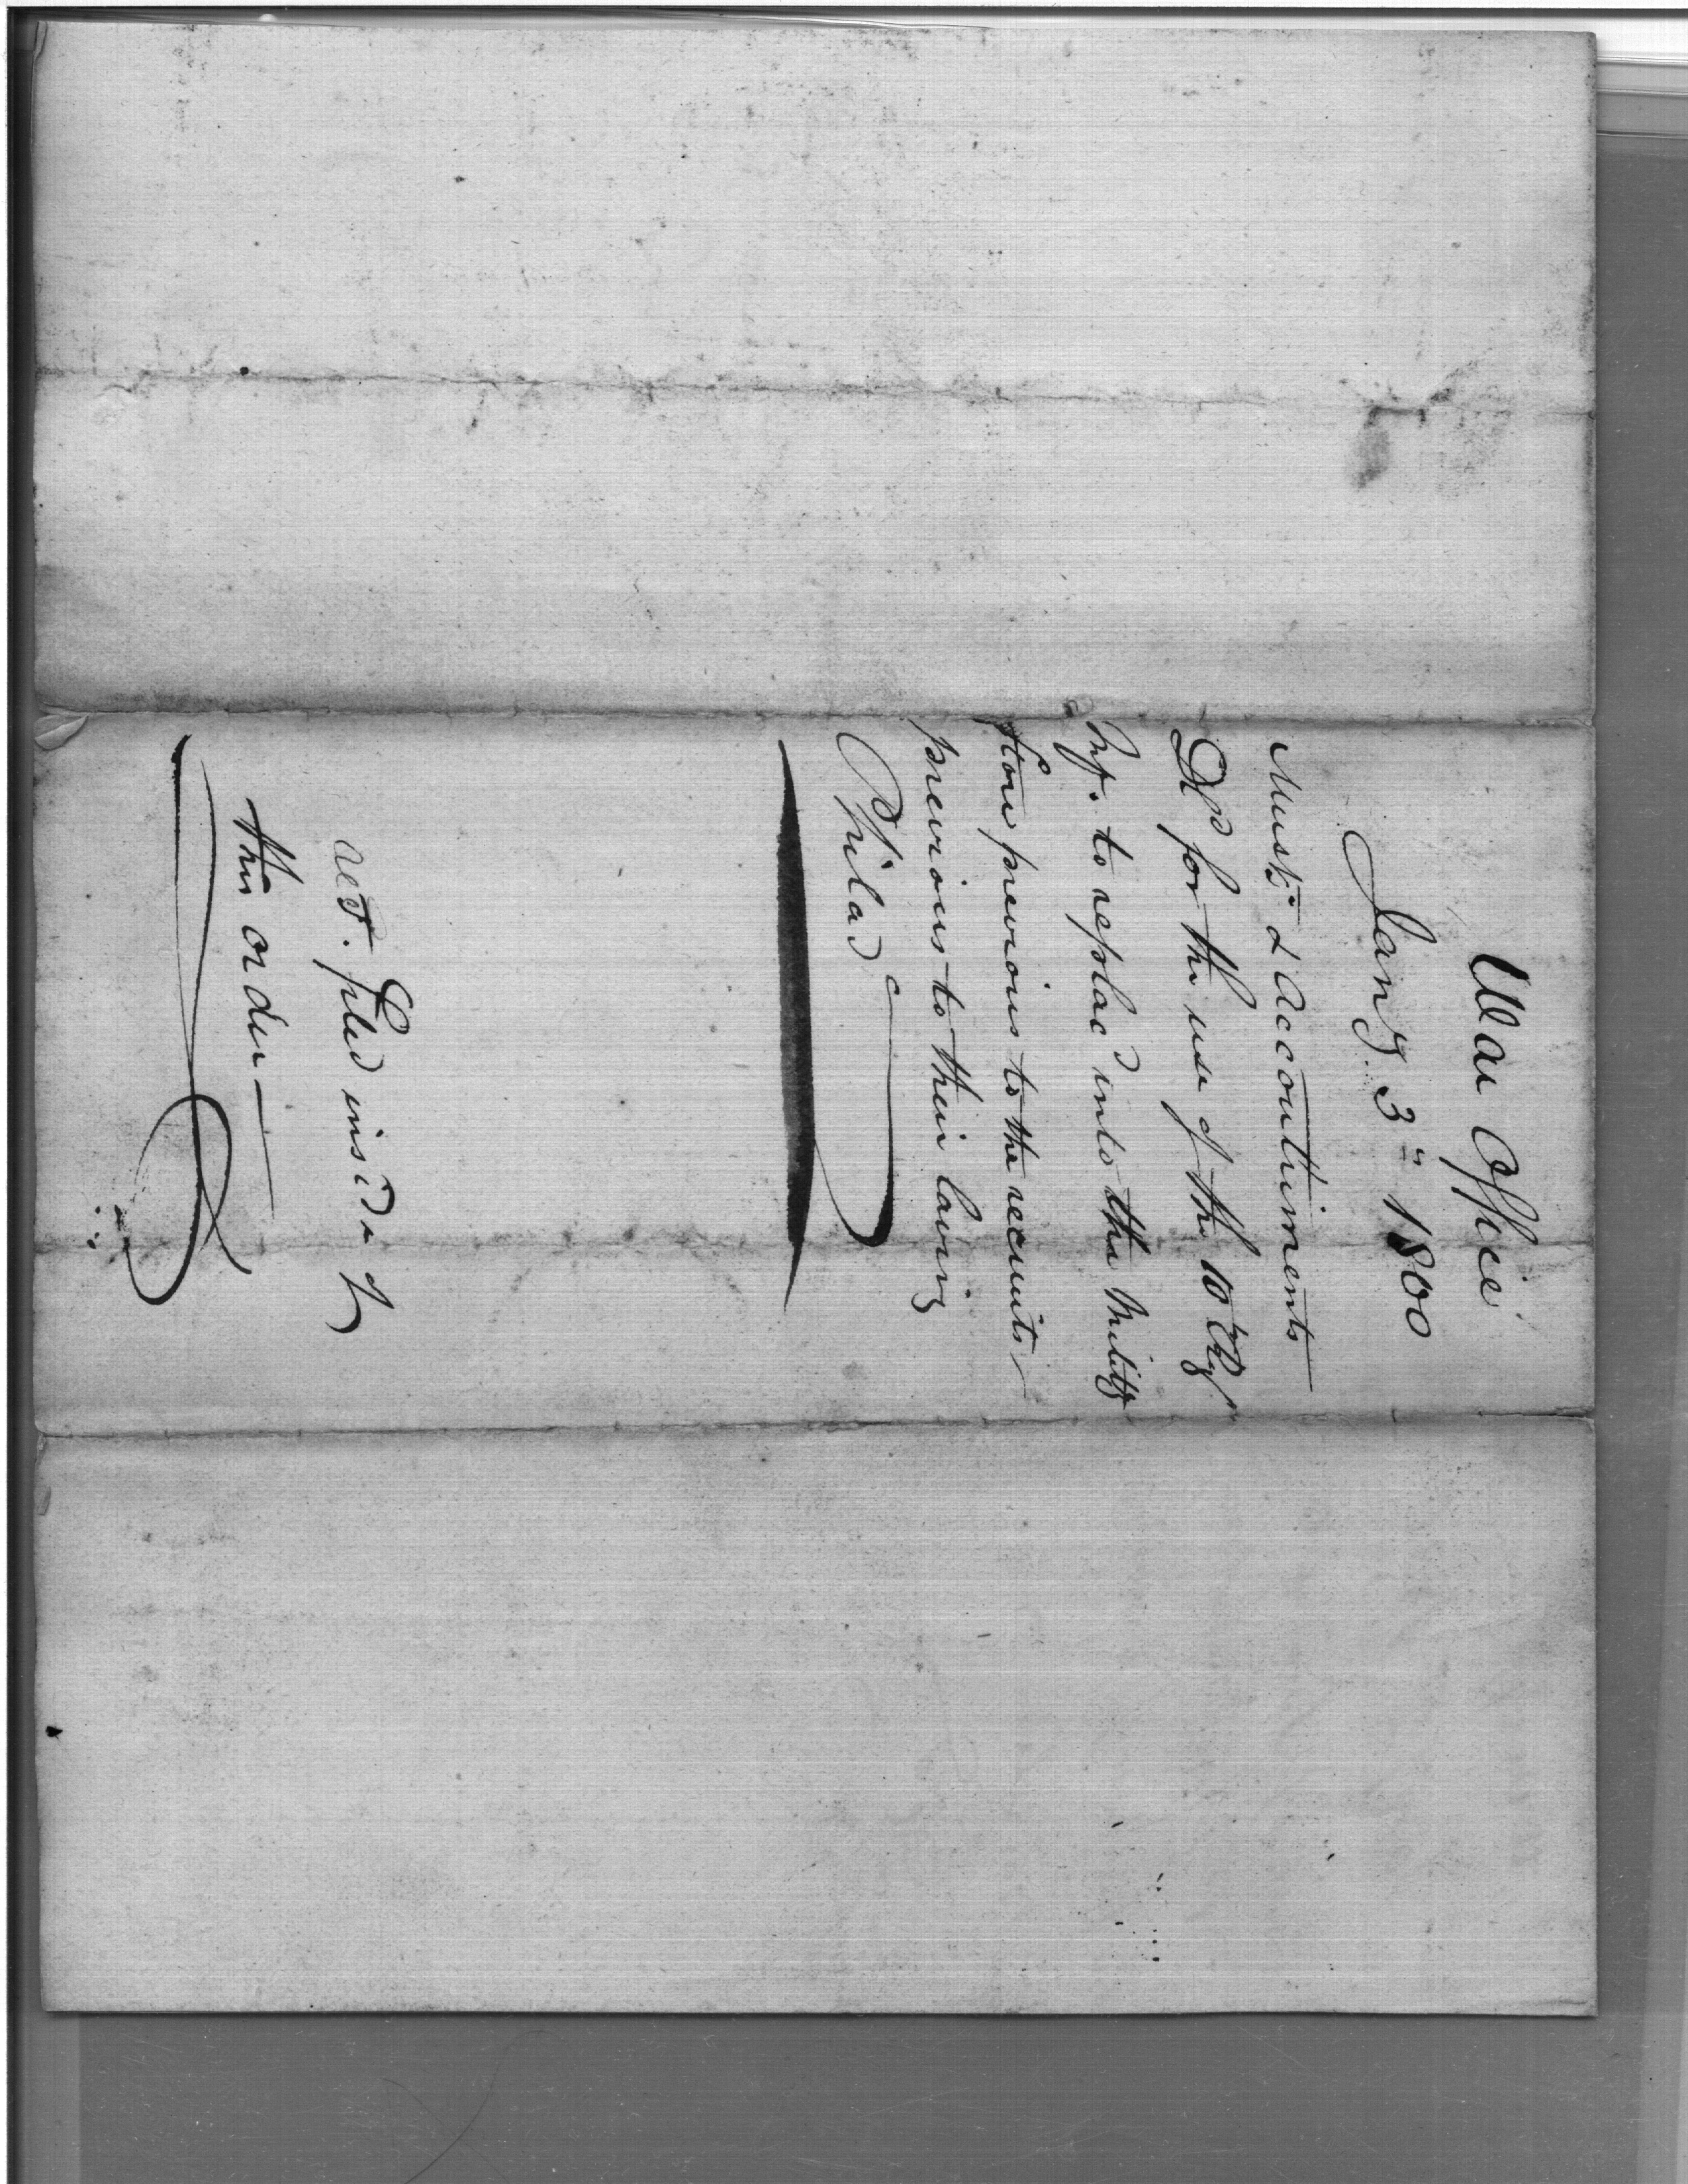 War Office
Jany. 3d 1800
Muskts. & Accoutriments
Dld for the use of the 10 Regt
Inf. to replacd into the Militty
Store previous to the recruits
previous to their laving
Philad
acct. filed inside of
this order